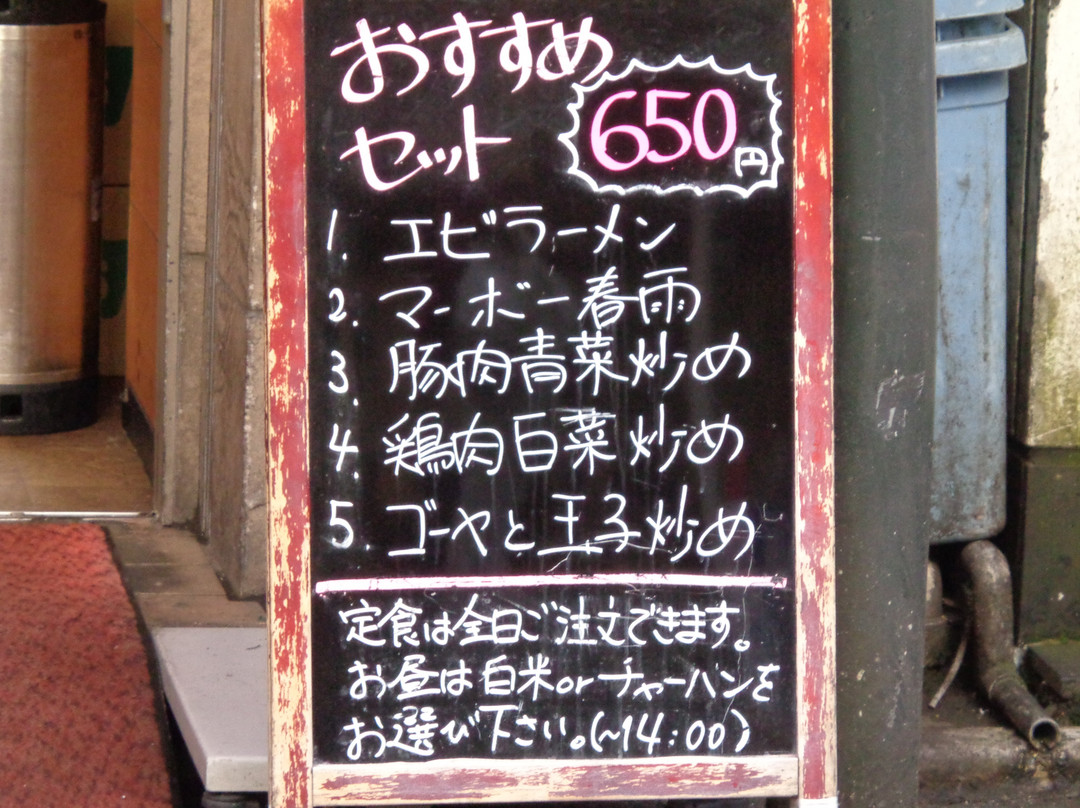 おすすめ
セット
650円
1. エビラーメン
2. マーボー春雨
3. 豚肉青菜炒め
4. 鶏肉白菜炒め
5. ゴーヤと玉子炒め
定食は全日ご注文できます。
お昼は白米orチャーハンを
お選び下さい。(~14:00)